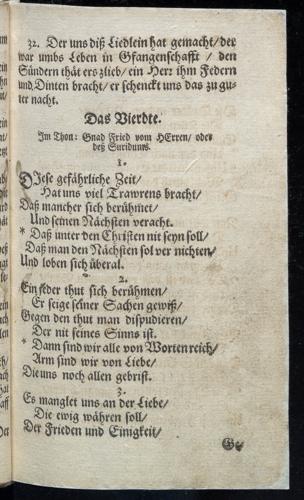 32. Der uns diß Liedlein hat gemacht/ der
war umbs Leben in Gfangenschafft / den
Sündern thät ers zlieb/ ein Herr ihm Federn
und Dinten bracht/ er schenckt uns das zu gu-
ter nacht.
Das Vierdte.
Im Thon: Gnad Fried vom HErren/ oder
deß Suridunns.
1.
DJese gefährliche Zeit/
Hat uns viel Trawrens bracht/
Daß mancher sich berühmet/
Und seinen Nächsten veracht.
* Daß unter den Christen nit seyn soll/
Daß man den Nächsten sol vernichten/
Und loben sich überal.
2.
Ein jeder thut sich berühmen/
Er seige seiner Sachen gewiß/
Gegen den thut man dispudieren/
Der nit seines Sinns ist.
* Dann sind wir alle von Worten reich/
Arm sind wir von Liebe/
Die uns noch allen gebrist.
3.
Es manglet uns an der Liebe/
Die ewig währen soll/
Der Frieden und Einigkeit/